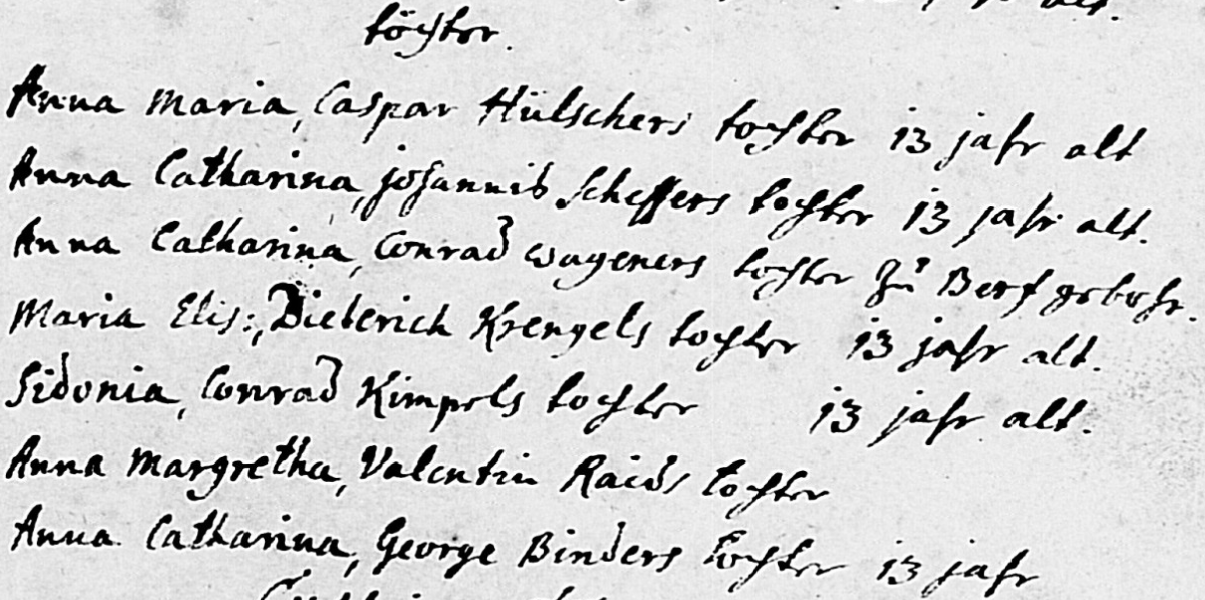 alt.
töchter.
Anna Maria, Caspar Hülschers tochter 13 jahr alt
Anna Catharina, johannis Scheffers tochter 13 jahr alt.
Anna Catharina, Conrad wageners tochter zu Berf gebohr.
Maria Elis:, Dieterich Krengels tochter 13 jahr alt.
Sidonia, Conrad Kimpels tochter 13 jahr alt.
Anna Margretha, Valentin Raids tochter
Anna Catharina, George Binders tochter 13 jahr